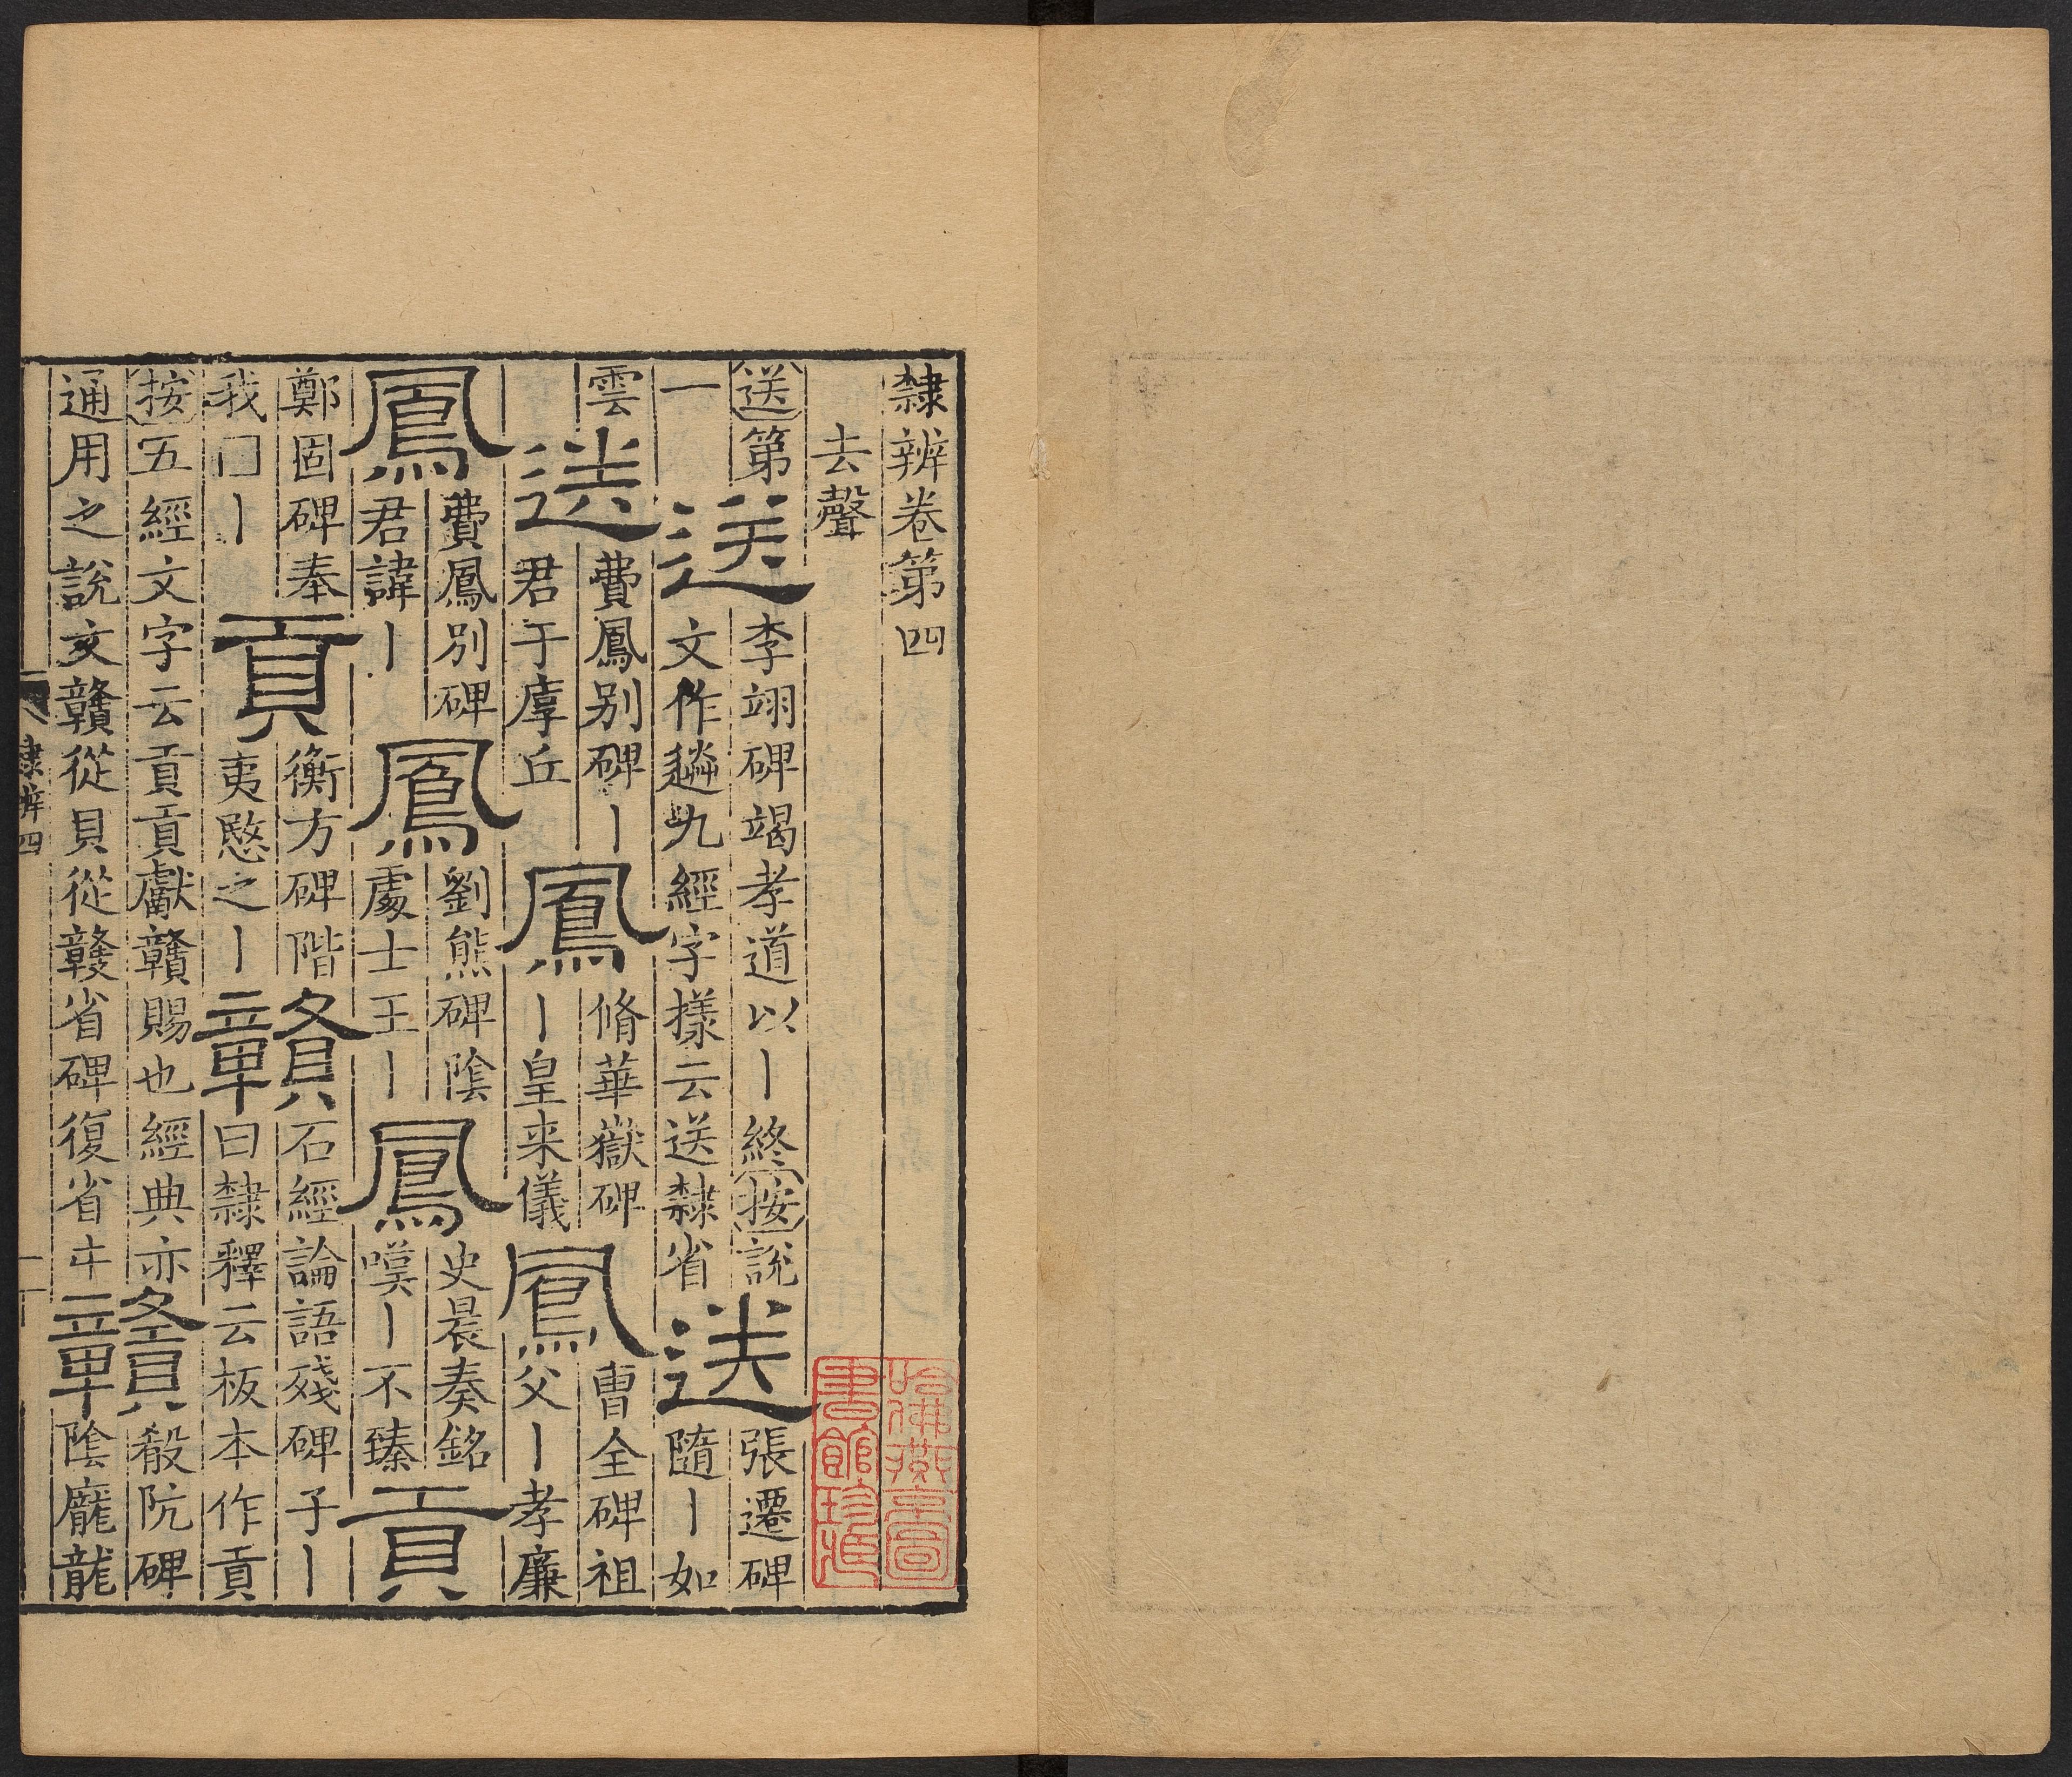 隸辨卷第四
去聲
送第一送李翊碑竭孝道以丨終按說文作九經字樣云送隸省送張遷碑隨丨如
雲送費鳳別碑丨君于厚丘鳳脩華嶽碑丨皇来儀鳳曹全碑祖父丨孝廉
鳳費鳳別碑君諱丨鳳劉熊碑陰處士王丨鳳史晨奏銘嘆丨不臻貢
鄭固碑奉我□丨貢衡方碑階夷愍之丨贛石經論語殘碑子丨曰隸釋云板本作貢
按五經文字云貢貢獻贛賜也經典亦通用之說文贛從貝從竷省碑復省㐄贛殽阬碑陰龐龍
隸辨四
一
哈佛燕京圖書館珍藏